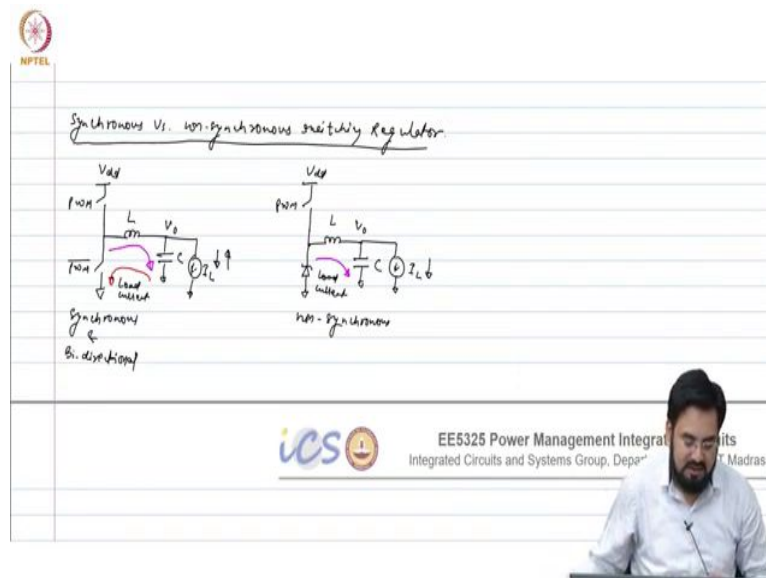 NPTEL
Synchronous Vs. non-synchronous switching Regulator.
Vdd
PWM
L
Vo
PWM
C
IL
Load
current
Synchronous
&
Bi-directional
Vdd
PWM
L
Vo
C
IL
Load
current
non-synchronous
iCS
EE5325 Power Management Integrat its
Integrated Circuits and Systems Group, Depar T Madras